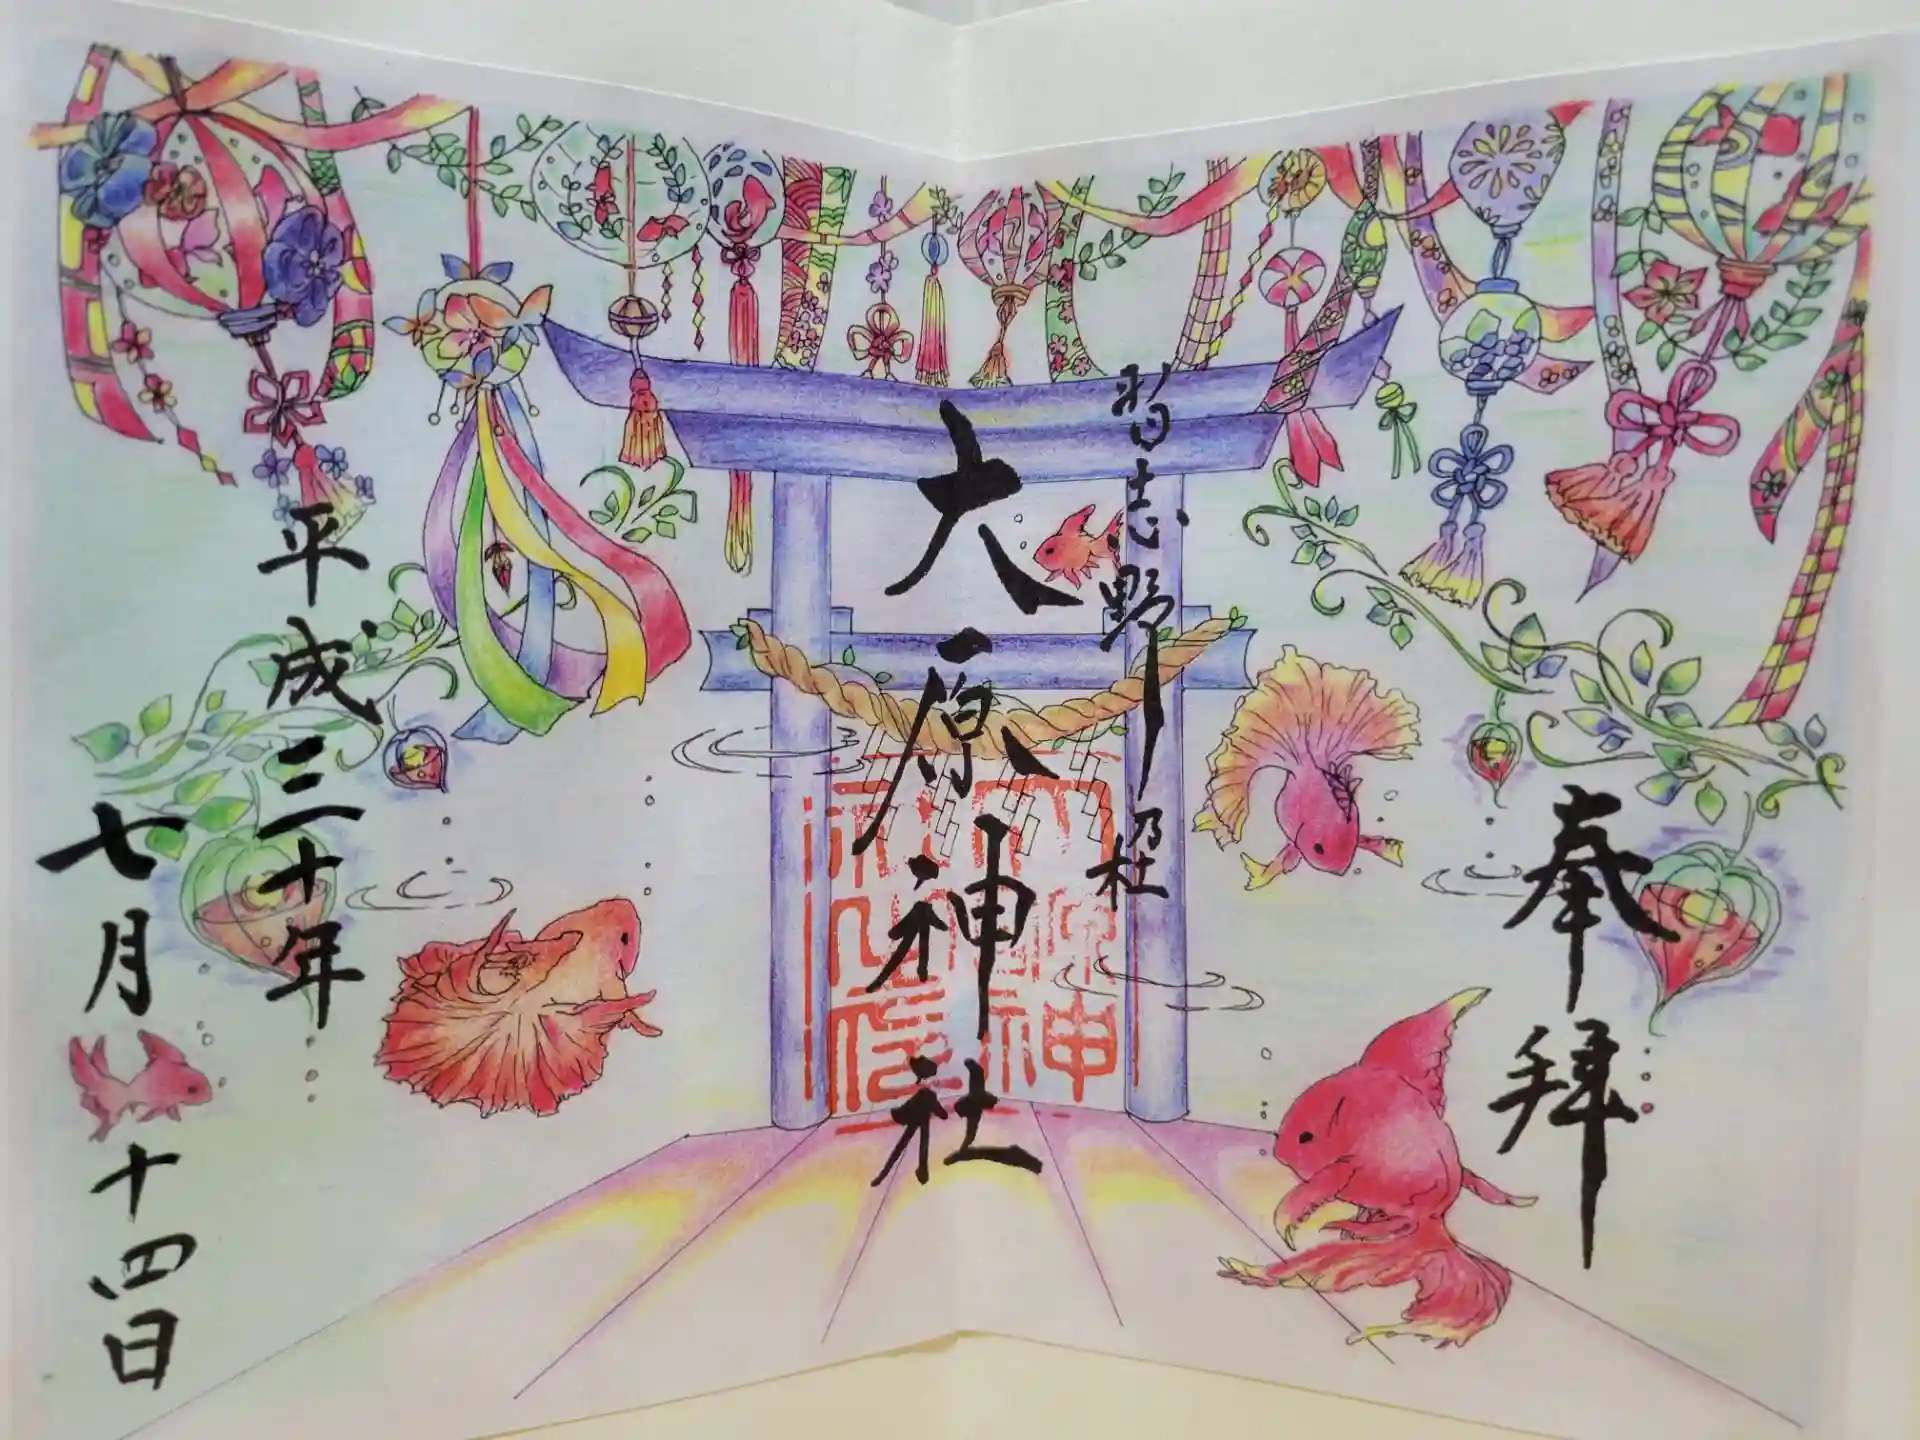 奉拝
習志野乃杜
大原神社
平成三十年
七月十四日